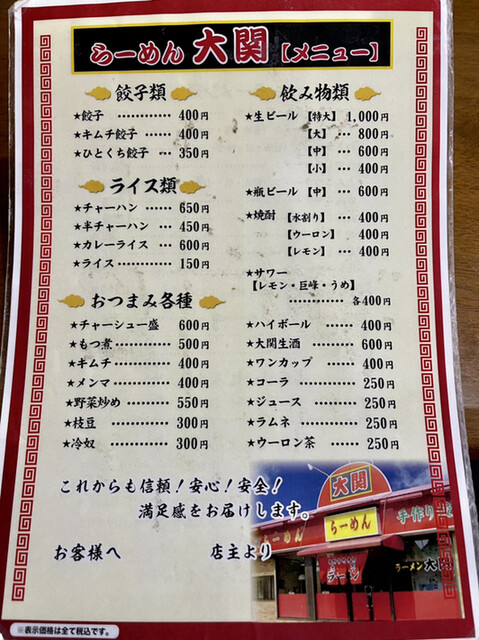 らーめん 大関【メニュー】
餃子類
★餃子 ………… 400円
★キムチ餃子 … 400円
★ひとくち餃子 … 350円
ライス類
★チャーハン …… 650円
★半チャーハン … 450円
★カレーライス … 600円
★ライス ………… 150円
おつまみ各種
★チャーシュー盛 600円
★もつ煮 ………… 500円
★キムチ ………… 400円
★メンマ ………… 400円
★野菜炒め ……… 550円
★枝豆 ………… 300円
★冷奴 ………… 300円
飲み物類
★生ビール【特大】1,000円
【大】… 800円
【中】… 600円
【小】… 400円
★瓶ビール【中】… 600円
★焼酎【水割り】… 400円
【ウーロン】… 400円
【レモン】… 400円
★サワー
【レモン・巨峰・うめ】
………… 各400円
★ハイボール …… 400円
★大関生酒 ……… 600円
★ワンカップ …… 400円
★コーラ ………… 250円
★ジュース ……… 250円
★ラムネ ………… 250円
★ウーロン茶 …… 250円
これからも信頼!安心!安全!
満足感をお届けします。
お客様へ 店主より
大関
らーめん
らーめん
手作り
ラーメン
ラーメン 大関
※表示価格は全て税込です。